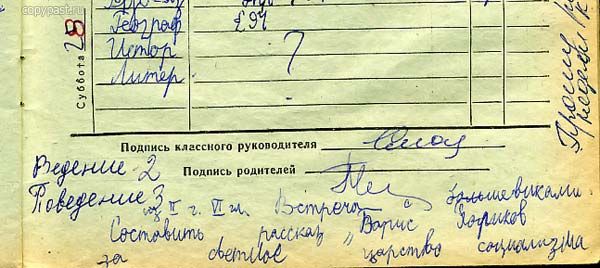 copypast.ru
Суббота 28
Географ § 94
Истор 7
Литер
Подпись классного руководителя
Подпись родителей
Ведение 2
Поведение 3
из II г. VI гл. Встреча с большевиками
Составить рассказ „Борис
за светлое царство социализма
Прошу